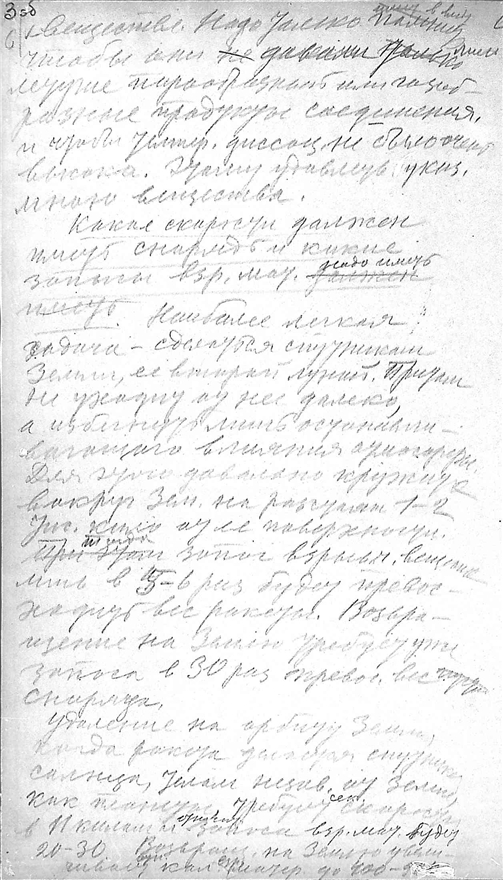 3 об
веществе. Надо только иметь в виду
чтобы они не давали только
летучие парообразные или газоб-
разные продукты соединения.
и чтобы темпер. диссоц. не была очень
высока. Этому удовлетв. указ.
мною вещества.
Какие скорости должен
иметь снарядъ и какие
запасы взр. мат. надо иметь
Наиболее легкая
задача — сделаться спутником
Земли, ее второй луной. Притом
не уходить от нее далеко,
а избегнуть лишь останавли-
вающего влияния атмосферы.
Для этого довольно кружиться
вокруг Зем. на расстоян 1–2
тыс. кило от ее поверхности.
При этом запас взрывн. вещества
лишь в 5–6 раз будет превос-
ходить вес ракеты. Возвра-
щение на Землю требует уже
запаса в 30 раз превос. вес
снаряда.
Удаление на орбиту Земли,
когда ракета делается спутником
солнца, телом незав. от Земли,
как планета, требует сек. скорости
в 17 килом запаса взр. мат. будет
20–30 Возвращ. на Землю увели-
чивает до 200–